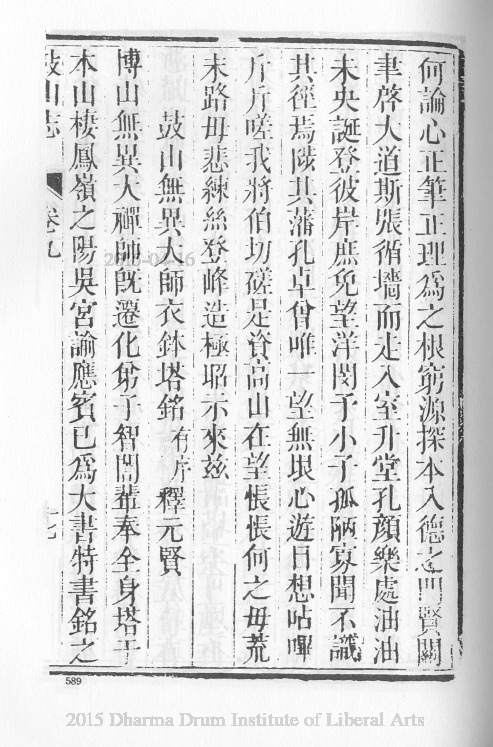 何論心正筆正理為之根窮源探本入德之門賢關
聿啓大道斯張循墻而走入室升堂孔顏樂處油油
未央誕登彼岸庶免望洋閔予小子孤陋寡聞不識
其徑焉陟其藩孔卓曾唯一望無垠心遊目想呫嗶
斤斤嗟我將伯切磋是資高山在望悵悵何之毋荒
末路毋悲練絲登峰造極昭示來茲
鼓山無異大師衣鉢塔銘有序釋元賢
博山無異大禪師旣遷化弟子智誾輩奉全身塔于
本山棲鳳嶺之陽吳宮諭應賓已為大書特書銘之
鼓山志 卷九
589
2015 Dharma Drum Institute of Liberal Arts